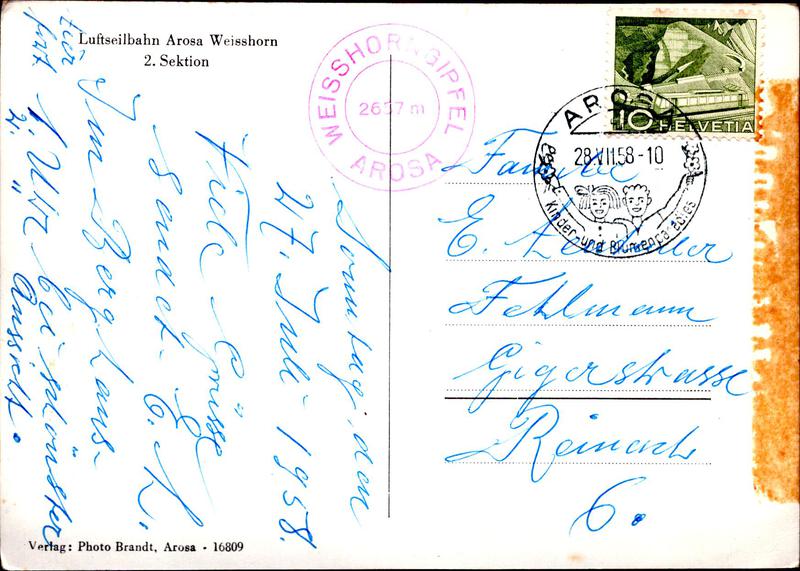 Luftseilbahn Arosa Weisshorn
2. Sektion
WEISSHORNGIPFEL
2657 m
AROSA
10 HELVETIA
AROSA
28.VII.58-10
Kinder- und Blumenparadies
Sonntag, den
27. Juli - 1958.
Viele Grüsse
sendet E. K.
Im Berghaus-
1. Uhr bei schönster
Aussicht.
Familie
E.
Fehlmann
Gigerstrasse
Reinach
6.
Verlag: Photo Brandt, Arosa - 16809